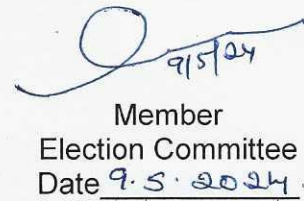 9/5/24
Member
Election Committee
Date 9.5.2024